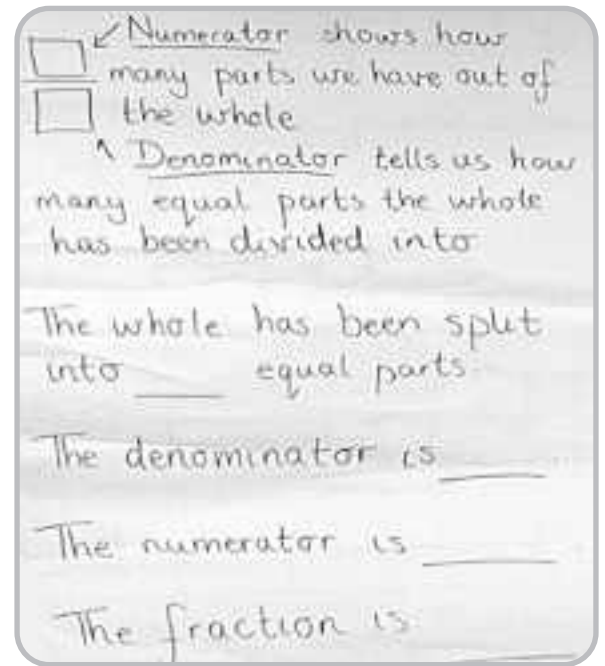 Numerator shows how
many parts we have out of
the whole
Denominator tells us how
many equal parts the whole
has been divided into
The whole has been split
into ____ equal parts
The denominator is ____
The numerator is ____
The fraction is ____